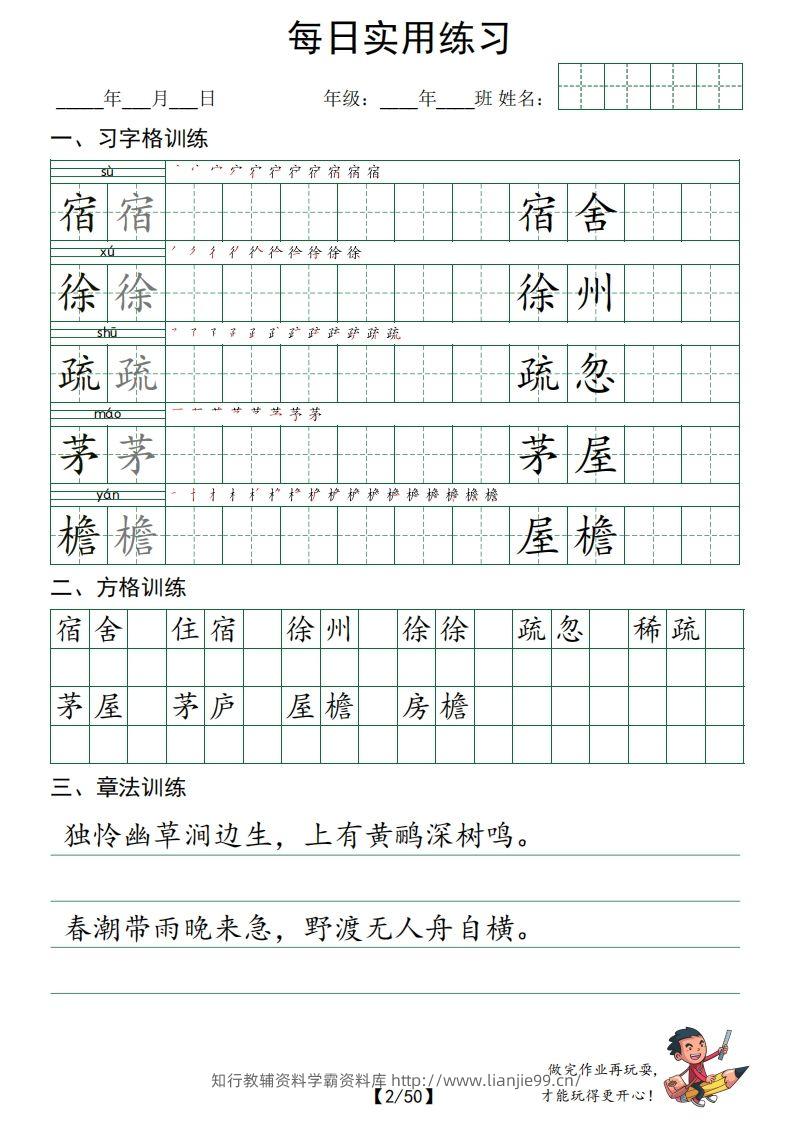 每日实用练习
_____年___月___日 年级：____年____班 姓名：
一、习字格训练
sù
宿 宿 宿 舍
xú
徐 徐 徐 州
shū
疏 疏 疏 忽
máo
茅 茅 茅 屋
yán
檐 檐 屋 檐
二、方格训练
宿 舍 住 宿 徐 州 徐 徐 疏 忽 稀 疏
茅 屋 茅 庐 屋 檐 房 檐
三、章法训练
独怜幽草涧边生，上有黄鹂深树鸣。
春潮带雨晚来急，野渡无人舟自横。
做完作业再玩耍，
知行教辅资料学霸资料库 http://www.lianjie99.cn/
才能玩得更开心！
【2/50】